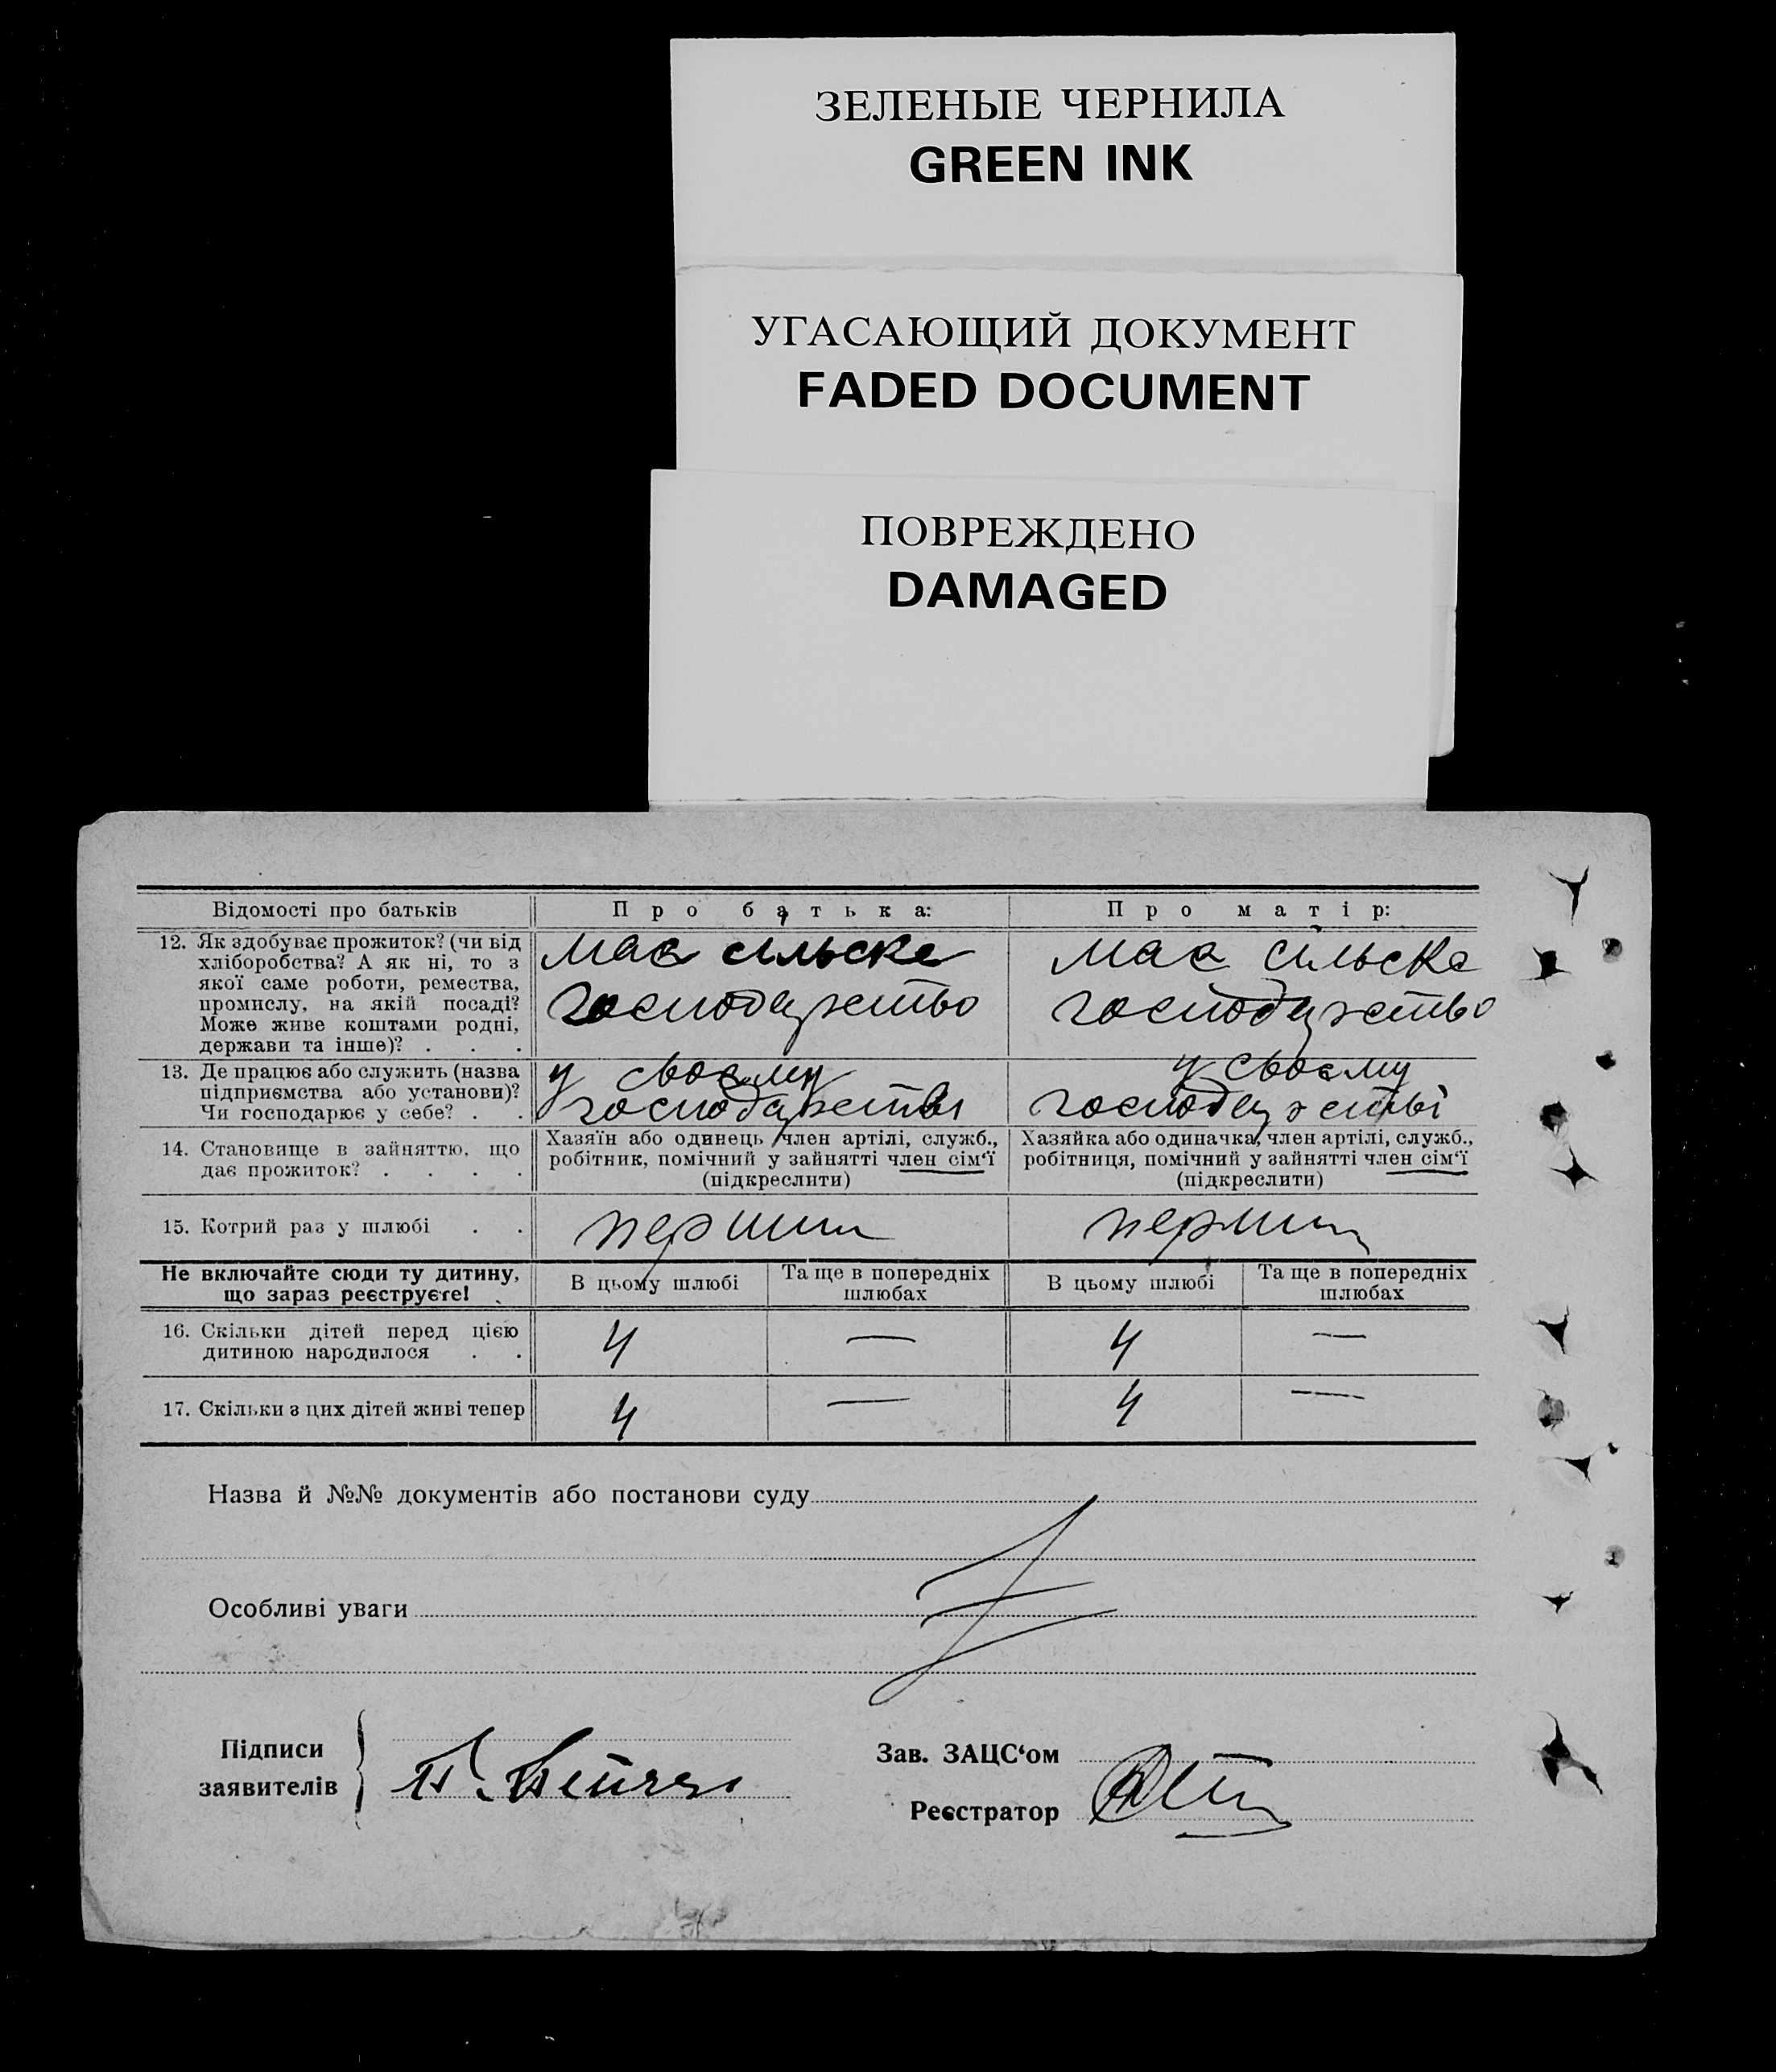 ЗЕЛЕНЫЕ ЧЕРНИЛА
GREEN INK
УГАСАЮЩИЙ ДОКУМЕНТ
FADED DOCUMENT
ПОВРЕЖДЕНО
DAMAGED
Відомості про батьків
Про батька:
Про матір:
12. Як здобуває прожиток? (чи від
хліборобства? А як ні, то з
якої саме роботи, ремества,
промислу, на якій посаді?
Може живе коштами родні,
держави та інше)? . . .
має сільське
господарство
має сільске
господарство
13. Де працює або служить (назва
підприємства або установи)?
Чи господарює у себе? . .
у своєму
господарстві
у своєму
господарстві
14. Становище в зайняттю, що
дає прожиток? . . . .
Хазяїн або одинець, член артілі, служб.,
робітник, помічний у зайнятті член сім'ї
(підкреслити)
Хазяйка або одиначка, член артілі, служб.,
робітниця, помічний у зайнятті член сім'ї
(підкреслити)
15. Котрий раз у шлюбі . .
перший
перший
Не включайте сюди ту дитину,
що зараз реєструєте!
В цьому шлюбі
Та ще в попередніх
шлюбах
В цьому шлюбі
Та ще в попередніх
шлюбах
16. Скільки дітей перед цією
дитиною народилося . .
4
—
4
—
17. Скільки з цих дітей живі тепер
4
—
4
—
Назва й №№ документів або постанови суду
Особливі уваги
Підписи
заявителів
Зав. ЗАЦС'ом
Реєстратор